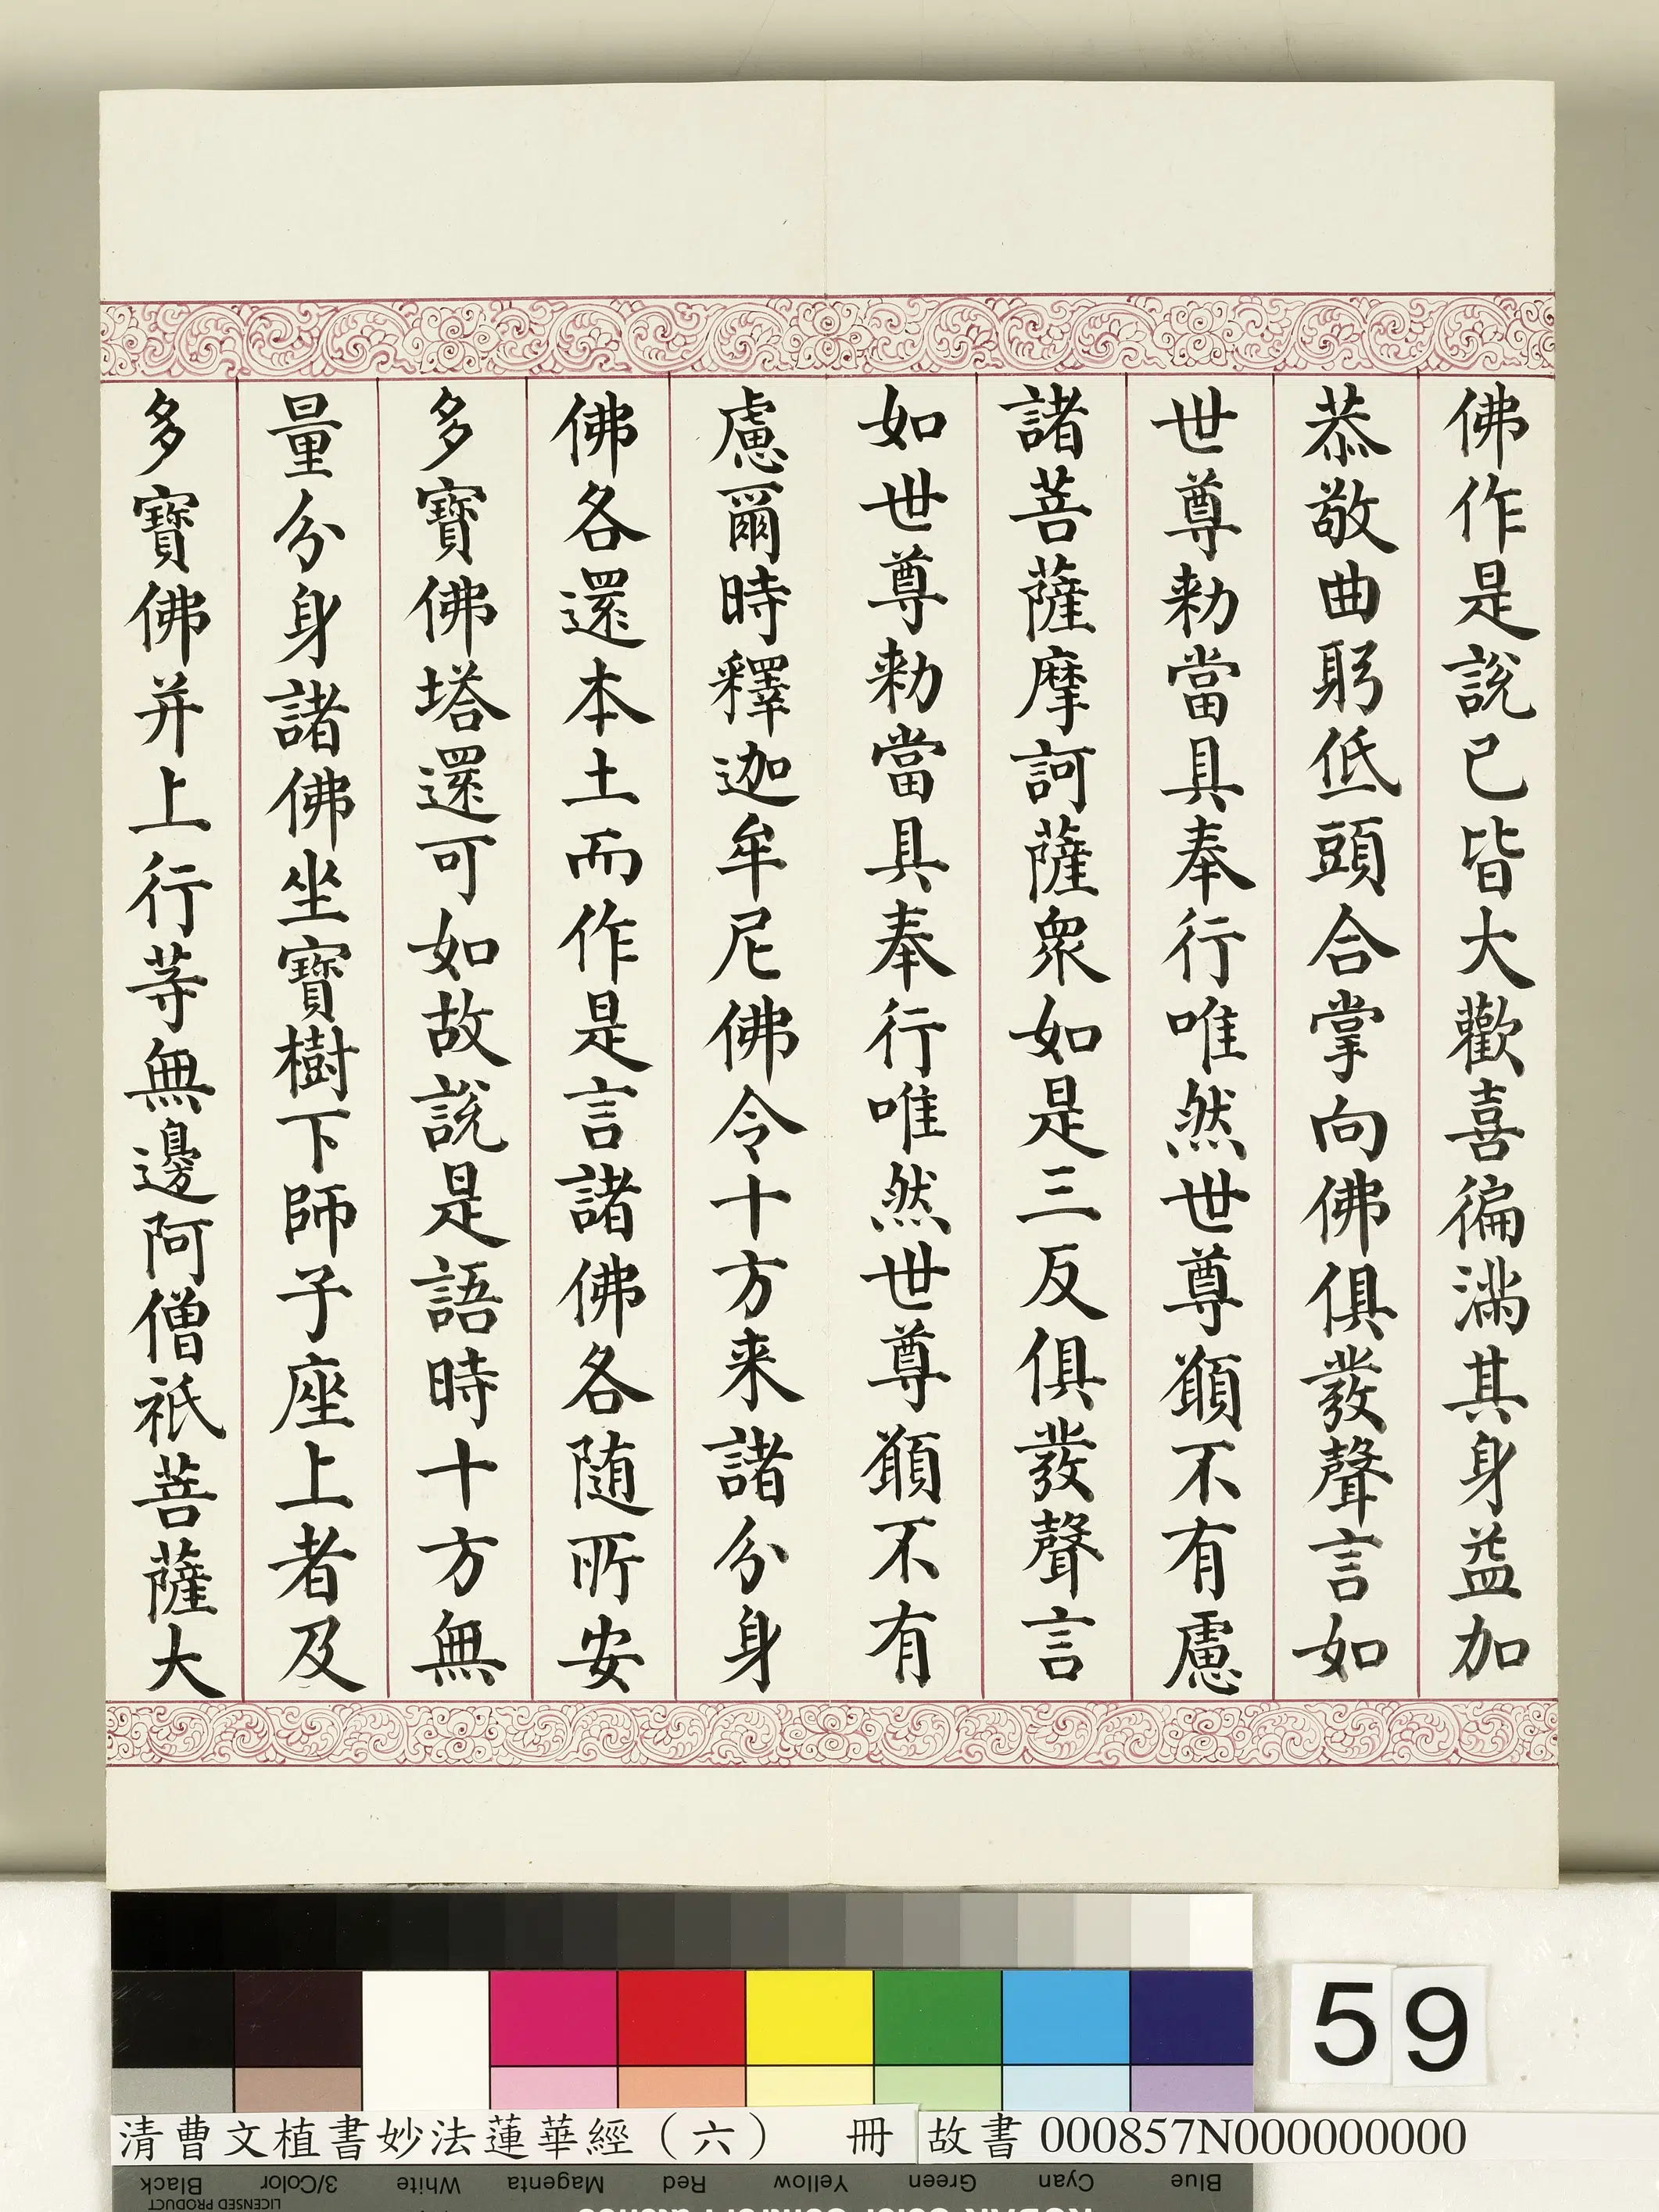 佛作是說已皆大歡喜徧滿其身益加
恭敬曲躬低頭合掌向佛俱發聲言如
世尊勑當具奉行唯然世尊頋不有慮
諸菩薩摩訶薩衆如是三反俱發聲言
如世尊勑當具奉行唯然世尊頋不有
慮爾時釋迦牟尼佛令十方来諸分身
佛各還本土而作是言諸佛各隨所安
多寶佛塔還可如故說是語時十方無
量分身諸佛坐寶樹下師子座上者及
多寶佛并上行等無邊阿僧祇菩薩大
59
清曹文植書妙法蓮華經（六） 冊 故書 000857N000000000
Black 3/Color White Magenta Red Yellow Green Cyan Blue
LICENSED PRODUCT